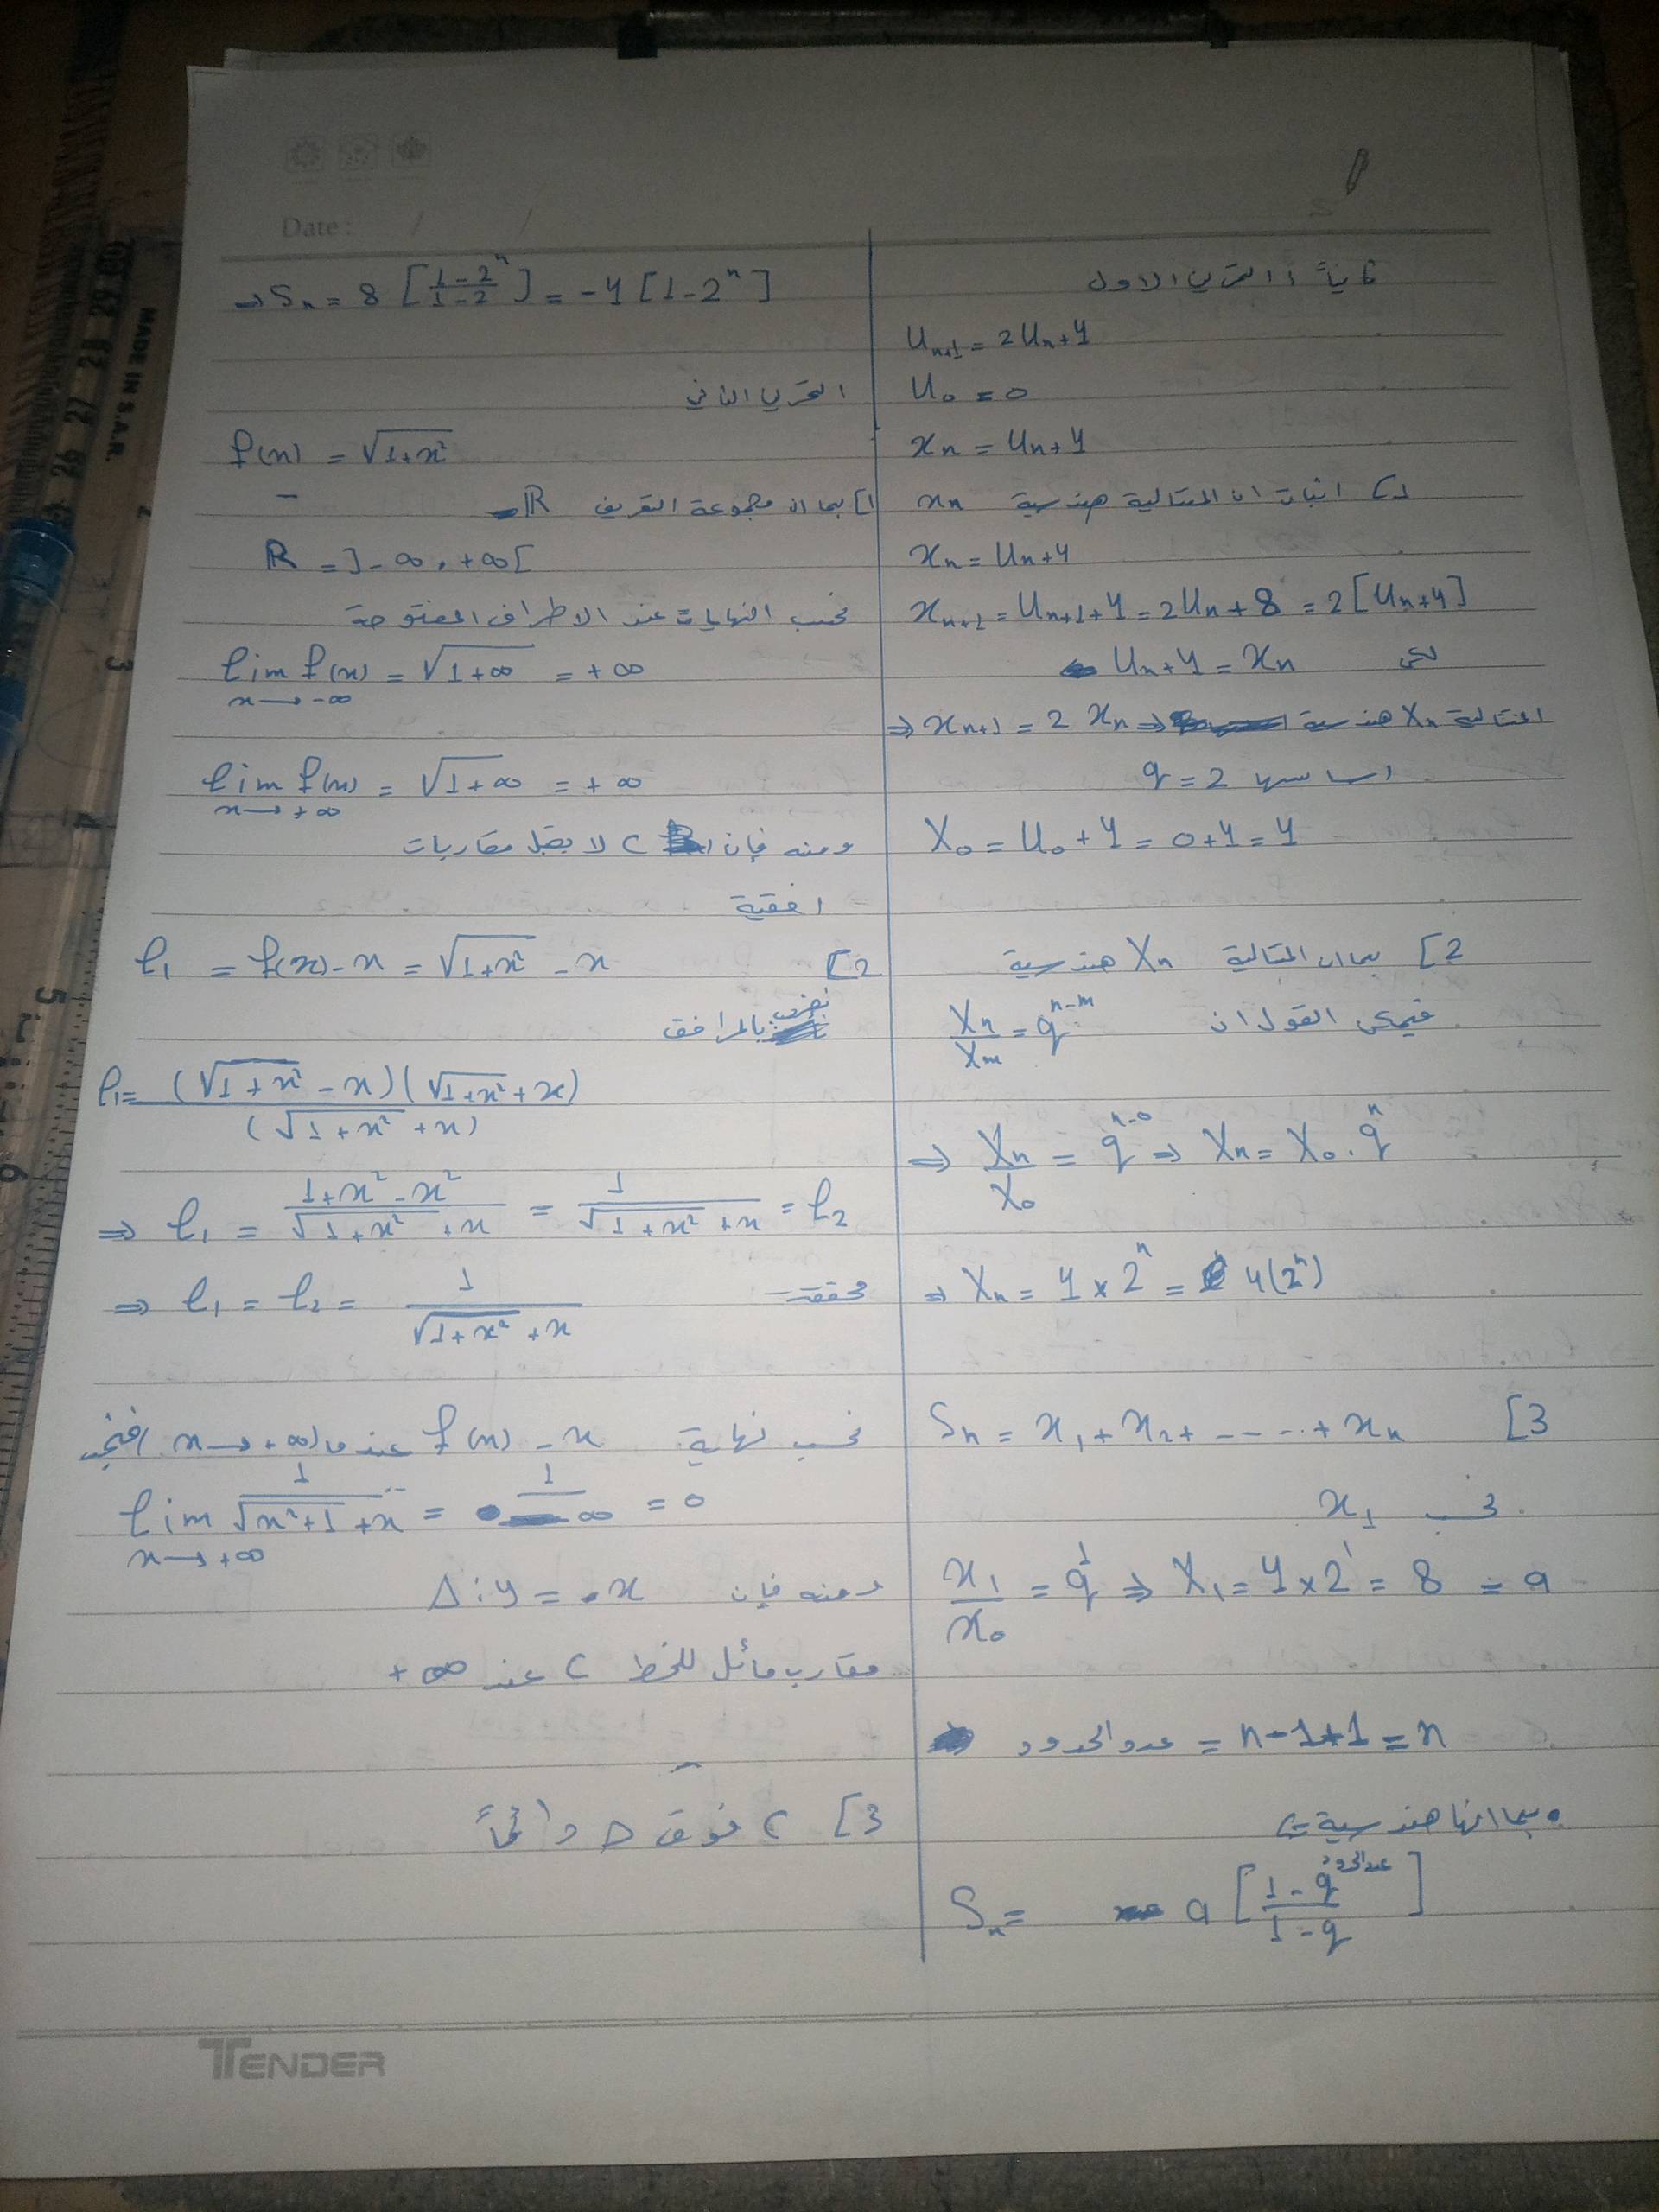 Date: / /
ثانياً: التمرين الاول
U_{n+1} = 2U_n + 4
U_0 = 0
x_n = U_n + 4
1] اثبات ان المتتالية x_n هندسية
x_n = U_n + 4
x_{n+1} = U_{n+1} + 4 = 2U_n + 8 = 2[U_n + 4]
لكن U_n + 4 = x_n
⇒ x_{n+1} = 2 x_n ⇒ المتتالية x_n هندسية
اساسها q = 2
X_0 = U_0 + 4 = 0 + 4 = 4
2] بما ان المتتالية X_n هندسية
فيمكن القول ان X_n / X_m = q^{n-m}
⇒ X_n / X_0 = q^{n-0} ⇒ X_n = X_0 . q^n
⇒ X_n = 4 × 2^n = 4(2^n)
3] S_n = x_1 + x_2 + ------ + x_n
نحسب x_1
x_1 / x_0 = q^1 ⇒ X_1 = 4 × 2^1 = 8 = a
عدد الحدود = n - 1 + 1 = n
• بما انها هندسية :
S_n = a [ (1 - q^{عدد الحدود}) / (1 - q) ]
⇒ S_n = 8 [ (1 - 2^n) / (1 - 2) ] = -4 [1 - 2^n]
التمرين الثاني
f(x) = √(1+x²)
1] بما ان مجموعة التعريف R
R = ]-∞, +∞[
نحسب النهايات عند الاطراف المفتوحة
lim_{x→-∞} f(x) = √(1+∞) = +∞
lim_{x→+∞} f(x) = √(1+∞) = +∞
ومنه فإن C لا يقبل مقاربات
افقية
2] l_1 = f(x) - x = √(1+x²) - x
نضرب بالمرافق
l_1 = (√(1+x²) - x)(√(1+x²) + x) / (√(1+x²) + x)
⇒ l_1 = (1+x²-x²) / (√(1+x²) + x) = 1 / (√(1+x²) + x) = l_2
⇒ l_1 = l_2 = 1 / (√(1+x²) + x) محققة
نحسب نهاية f(x) - x عندما (x → +∞) فنجد
lim_{x→+∞} 1 / (√(x²+1) + x) = 1 / ∞ = 0
ومنه فإن Δ: y = x
مقارب مائل للخط C عند +∞
3] C فوق Δ دائماً
TENDER